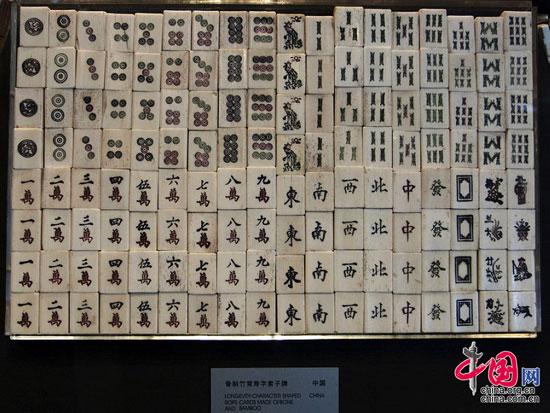 一萬 二萬 三萬 四萬 伍萬 六萬 七萬 八萬 九萬 東 南 西 北 中 發
一萬 二萬 三萬 四萬 伍萬 六萬 七萬 八萬 九萬 東 南 西 北 中 發
一萬 二萬 三萬 四萬 伍萬 六萬 七萬 八萬 九萬 東 南 西 北 中 發
一萬 二萬 三萬 四萬 伍萬 六萬 七萬 八萬 九萬 東 南 西 北 中 發
骨制竹背寿字索子牌 中国
LONGEVITY-CHARACTER SHAPED CHINA
ROPE CARDS MADE OF BONE
AND BAMBOO
中国网
china.org.cn